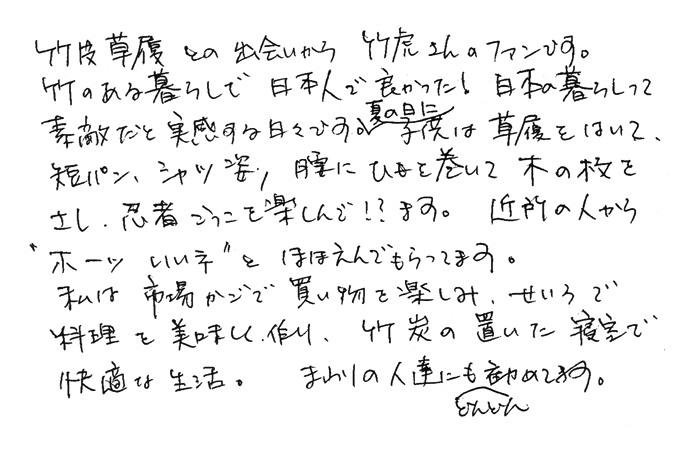 竹皮草履との出会いから 竹虎さんのファンです。
竹のある暮らしで 日本人で良かった! 日本の暮らしって
素敵だと実感する日々です。夏の日に子供は草履をはいて、
短パン、シャツ姿、腰にひもを巻いて 木の枝を
さし、忍者ごっこを楽しんで!?ます。 近所の人から
"ホーッ いいネ"と ほほえんでもらってます。
私は 市場かごで 買い物を楽しみ、せいろで
料理を美味しく作り、竹炭の置いた寝室で
快適な生活。 まわりの人達にもどんどん勧めてます。